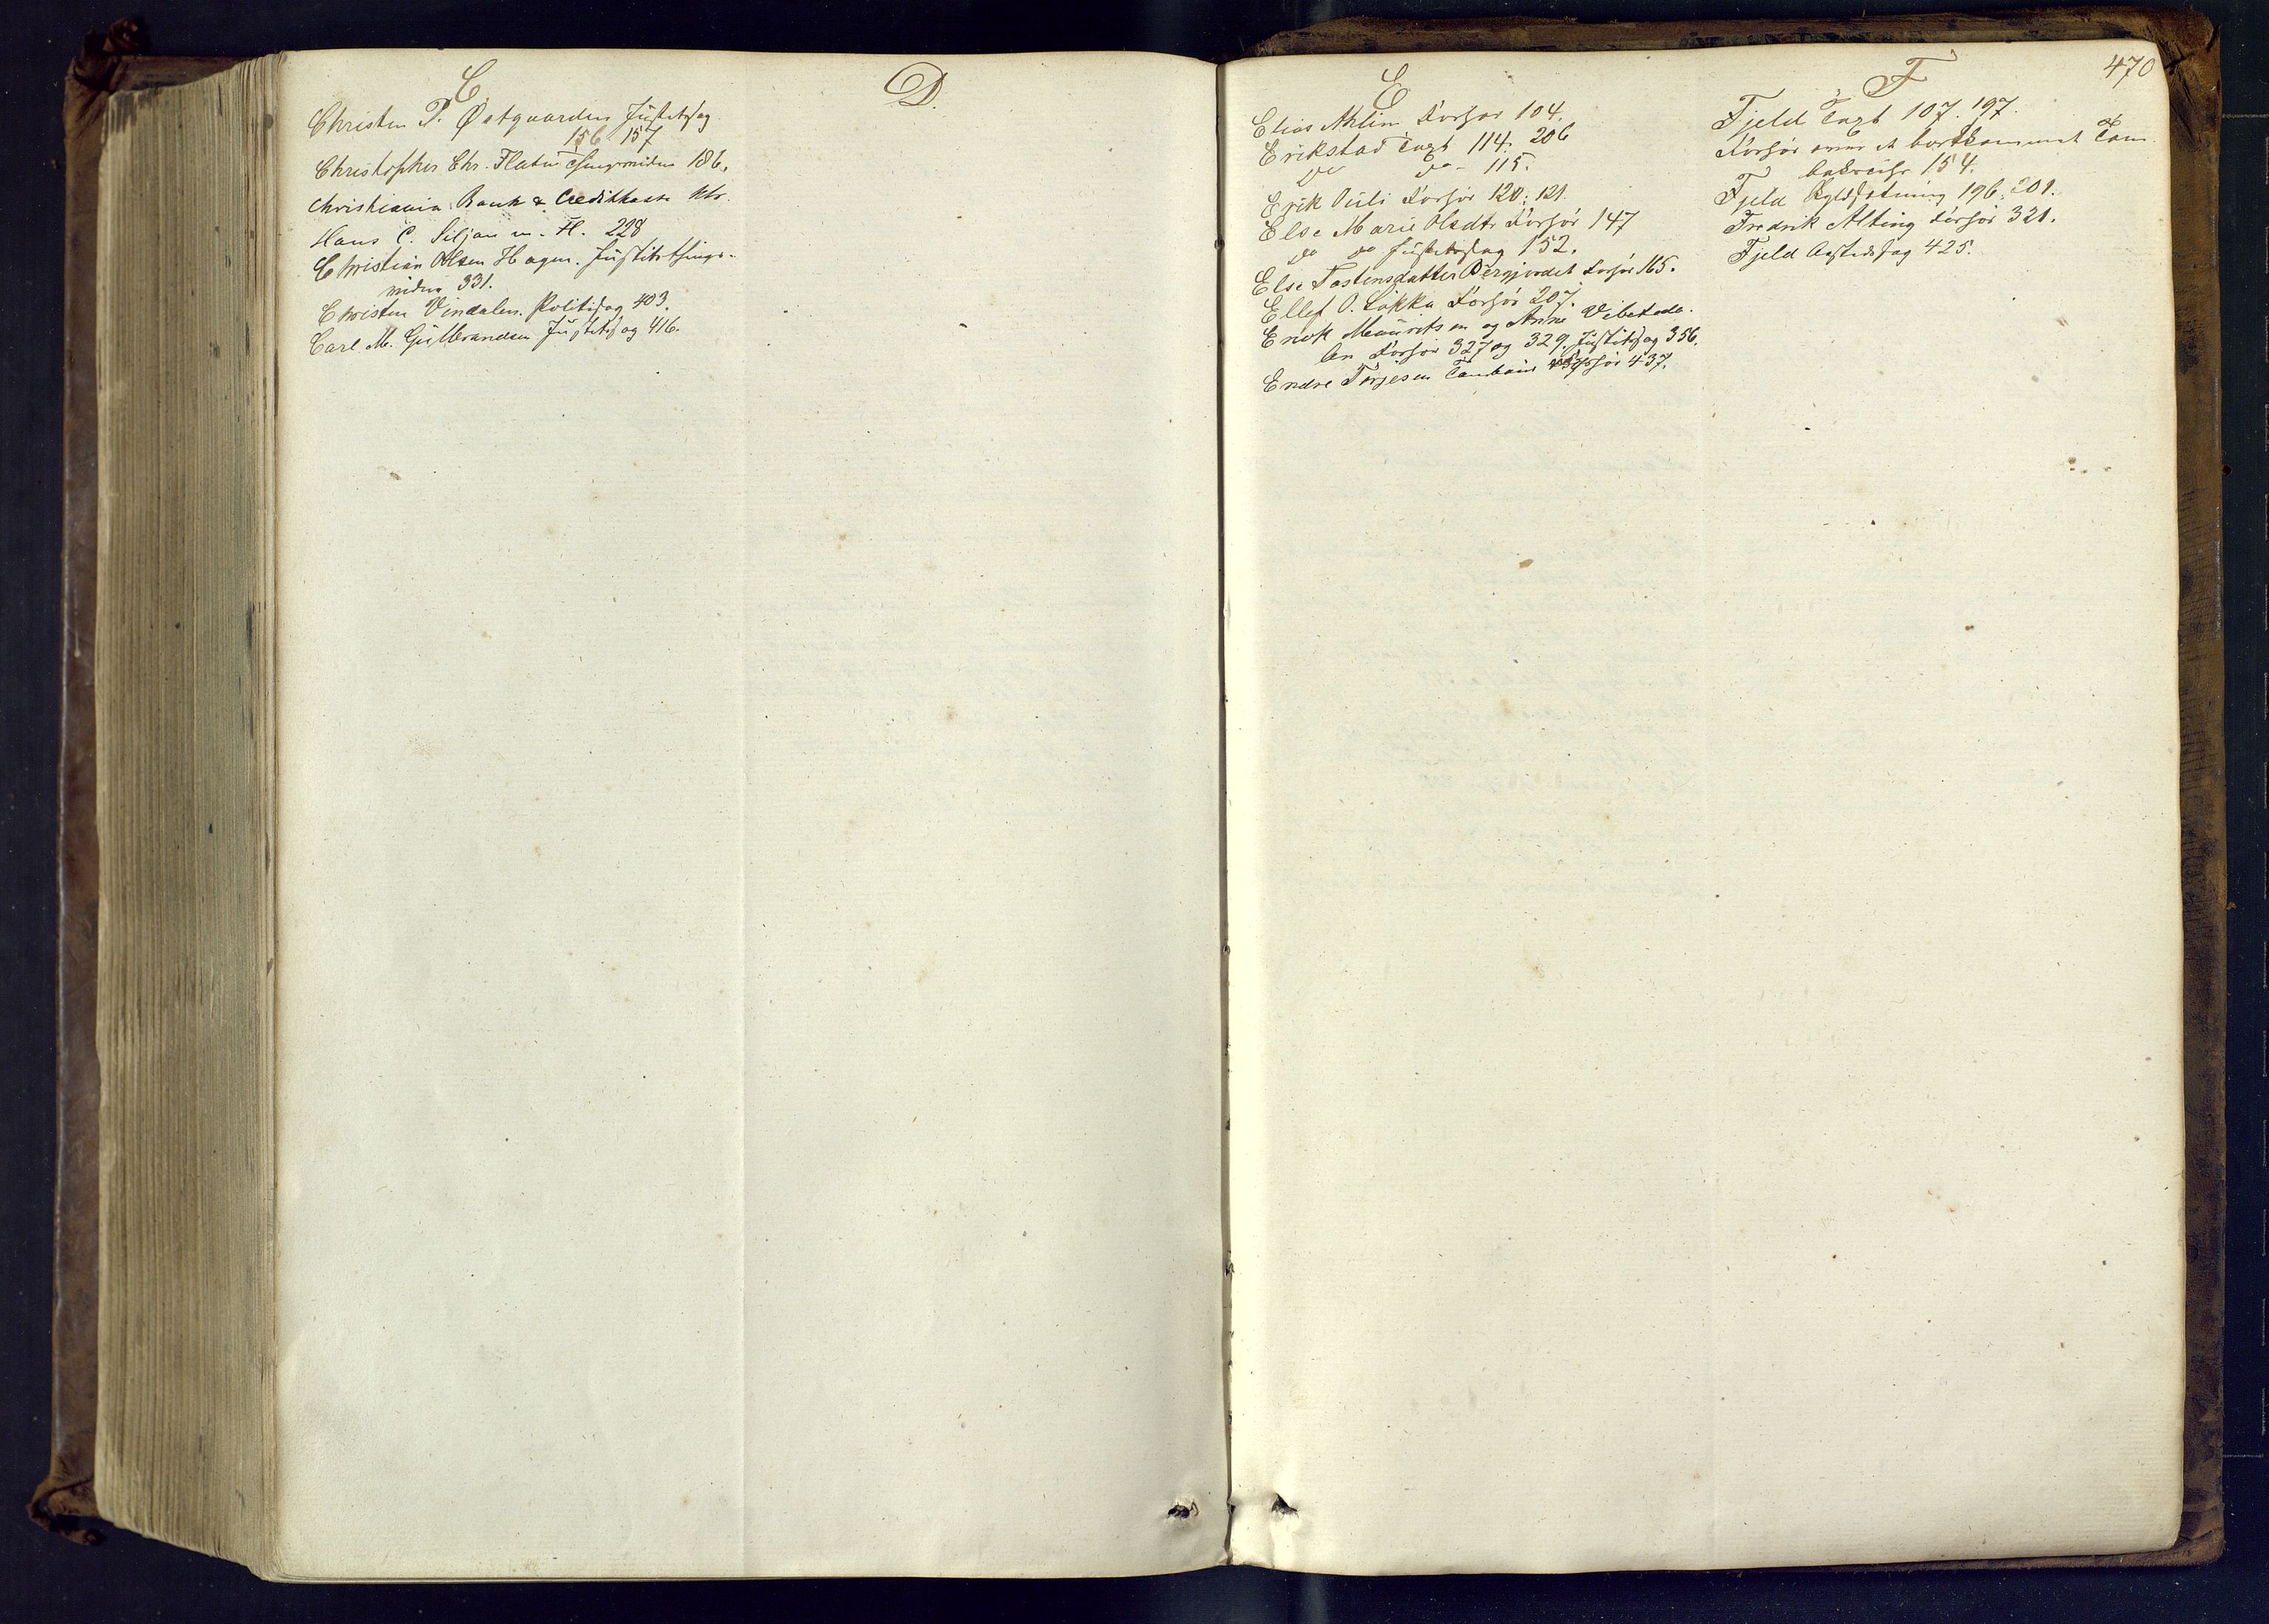 C.
Christen P. Østgaarden Justitssag
156. 157
Christopher Chr. Flatin Thingsvidne 186.
Christiania Bank & Creditkasse ktr.
Hans C. Siljan m. Fl. 228
Christian Olsen Hagen. Justitsthings-
vidne 331.
Christen Vindalen. Politisag 403.
Carl M. Gulbrandsen Justitssag 416.
D.
E
Elias Ahlim Forhør 104.
Erikstad Taxt 114. 206
do do - 115.
Erik Juli Forhør 120. 121.
Else Marie Olsdtr Forhør 147
do do Justitssag 152.
Else Tostensdatter Bergjordet Forhør 165.
Ellef O. Løkka Forhør 207.
Enok Mauritsen og Anne Vibetodo.
len Forhør 327 og 329. Justitssag 356.
Endre Torjesen Forhør 437.
F
470
Fjeld Taxt 107. 197.
Forhør over et bortkommet
154.
Fjeld 196. 201.
Fredrik Alting Forhør 321.
Fjeld Aastedssag 425.